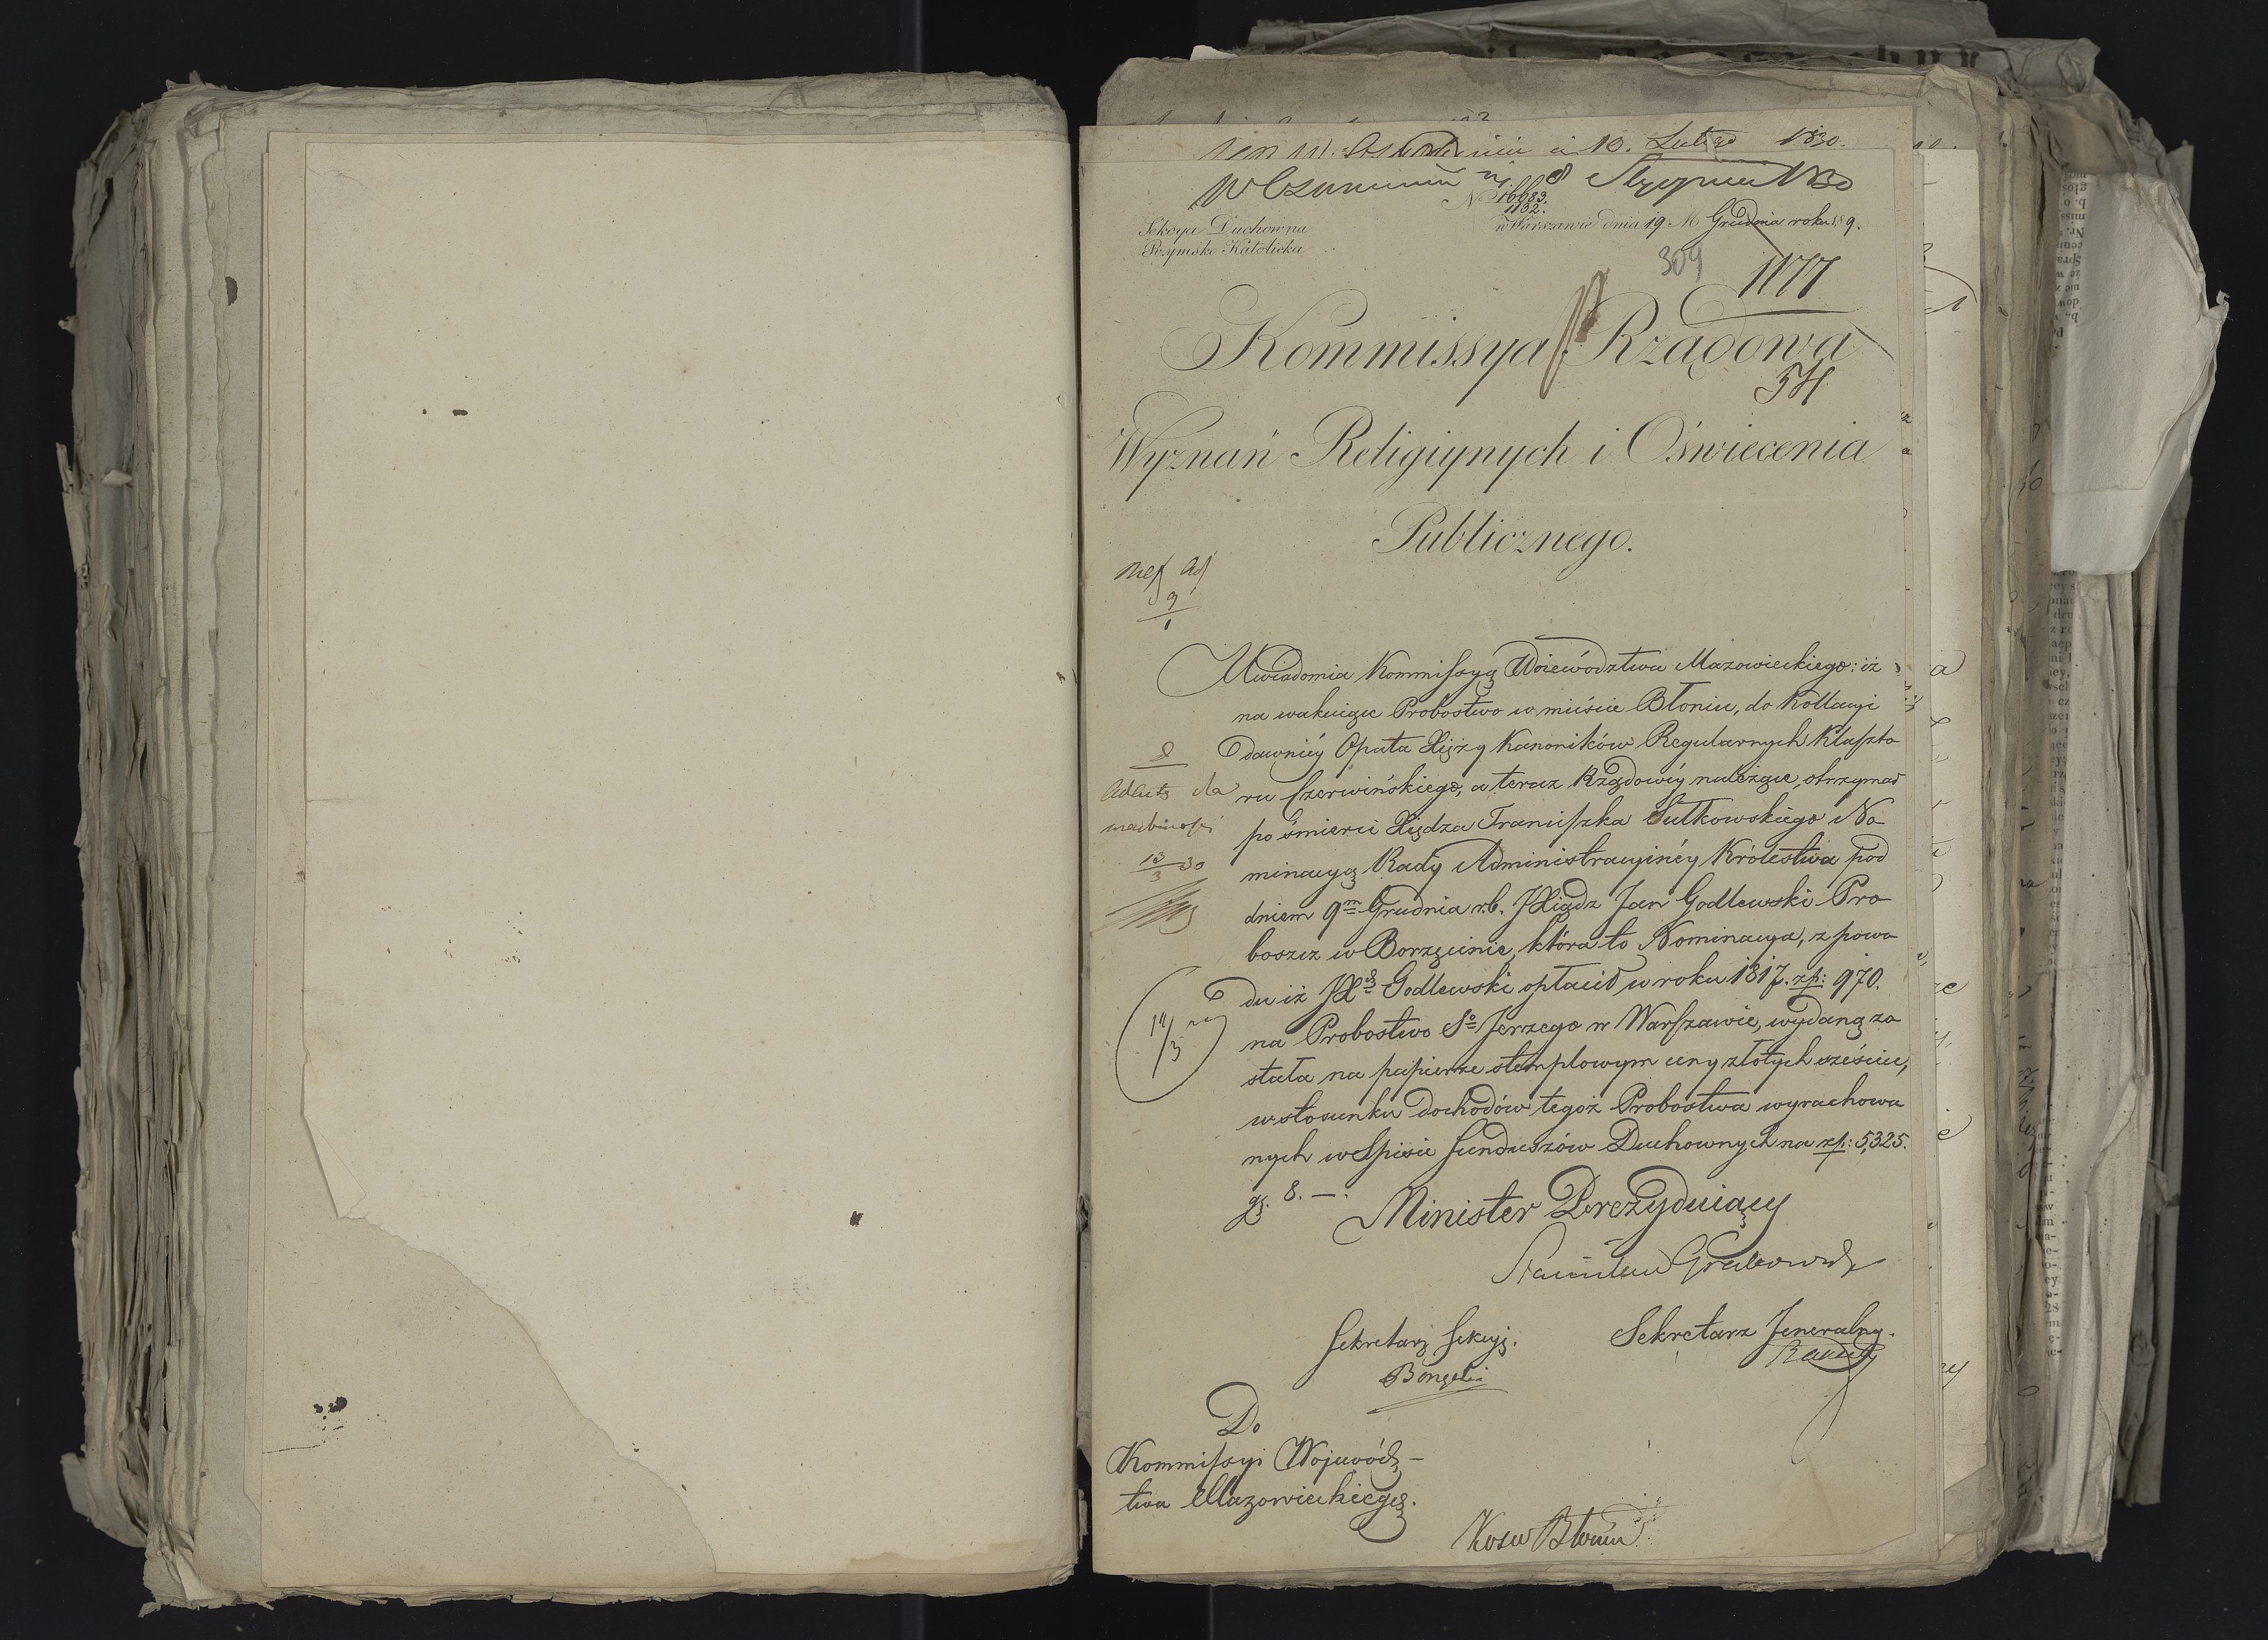 10. Lutego 1830.
8 Stycznia 1830
N 16683.
1132.
Sekcya Duchowna
Rzymsko Katolicka
w Warszawie dnia 19 M Grudnia roku 1829.
309
1177
Kommissya Rządowa
54
Wyznań Religiynych i Oświecenia
Publicznego.
9
1
Uwiadomia Kommissyą Woiewództwa Mazowieckiego: iż
na wakuiące Probostwo w mieście Błoniu, do Kollacyi
dawniéy Opata Xięży Kanoników Regularnych Klaszto
ru Czerwińskiego, a teraz Rządowéy należące, otrzymał
po śmierci Xiędza Franciszka Sutkowskiego No
minacyą Rady Administracyinéy Królestwa pod
dniem 9m Grudnia r.b. JXiądz Jan Godlewski Pro
boszcz w Borzęcinie, która to Nominacya, z powo
du iż JXdz Godlewski opłacił w roku 1817. zp: 970.
na Probostwo So Jerzego w Warszawie, wydaną zo
stała na papierze stemplowym ceny złotych sześciu,
w stosunku dochodów tegoż Probostwa wyrachowa
nych w Spisie funduszów Duchownych na zp: 5,325.
gr. 8. —.
ad acta
13/3 30
12/3
Minister Prezyduiący
Stanisław Grabowski
Sekretarz Sekcyi.
Sekretarz Jeneralny.
Do
Kommissyi Wojewódz-
twa Mazowieckiego.
Błonie